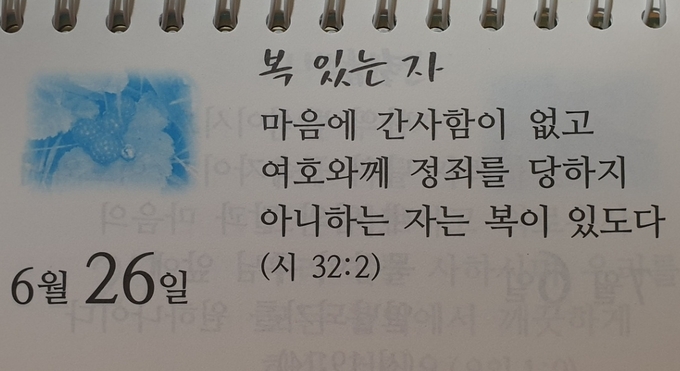 복 있는 자
마음에 간사함이 없고
여호와께 정죄를 당하지
아니하는 자는 복이 있도다
(시 32:2)
6월 26일